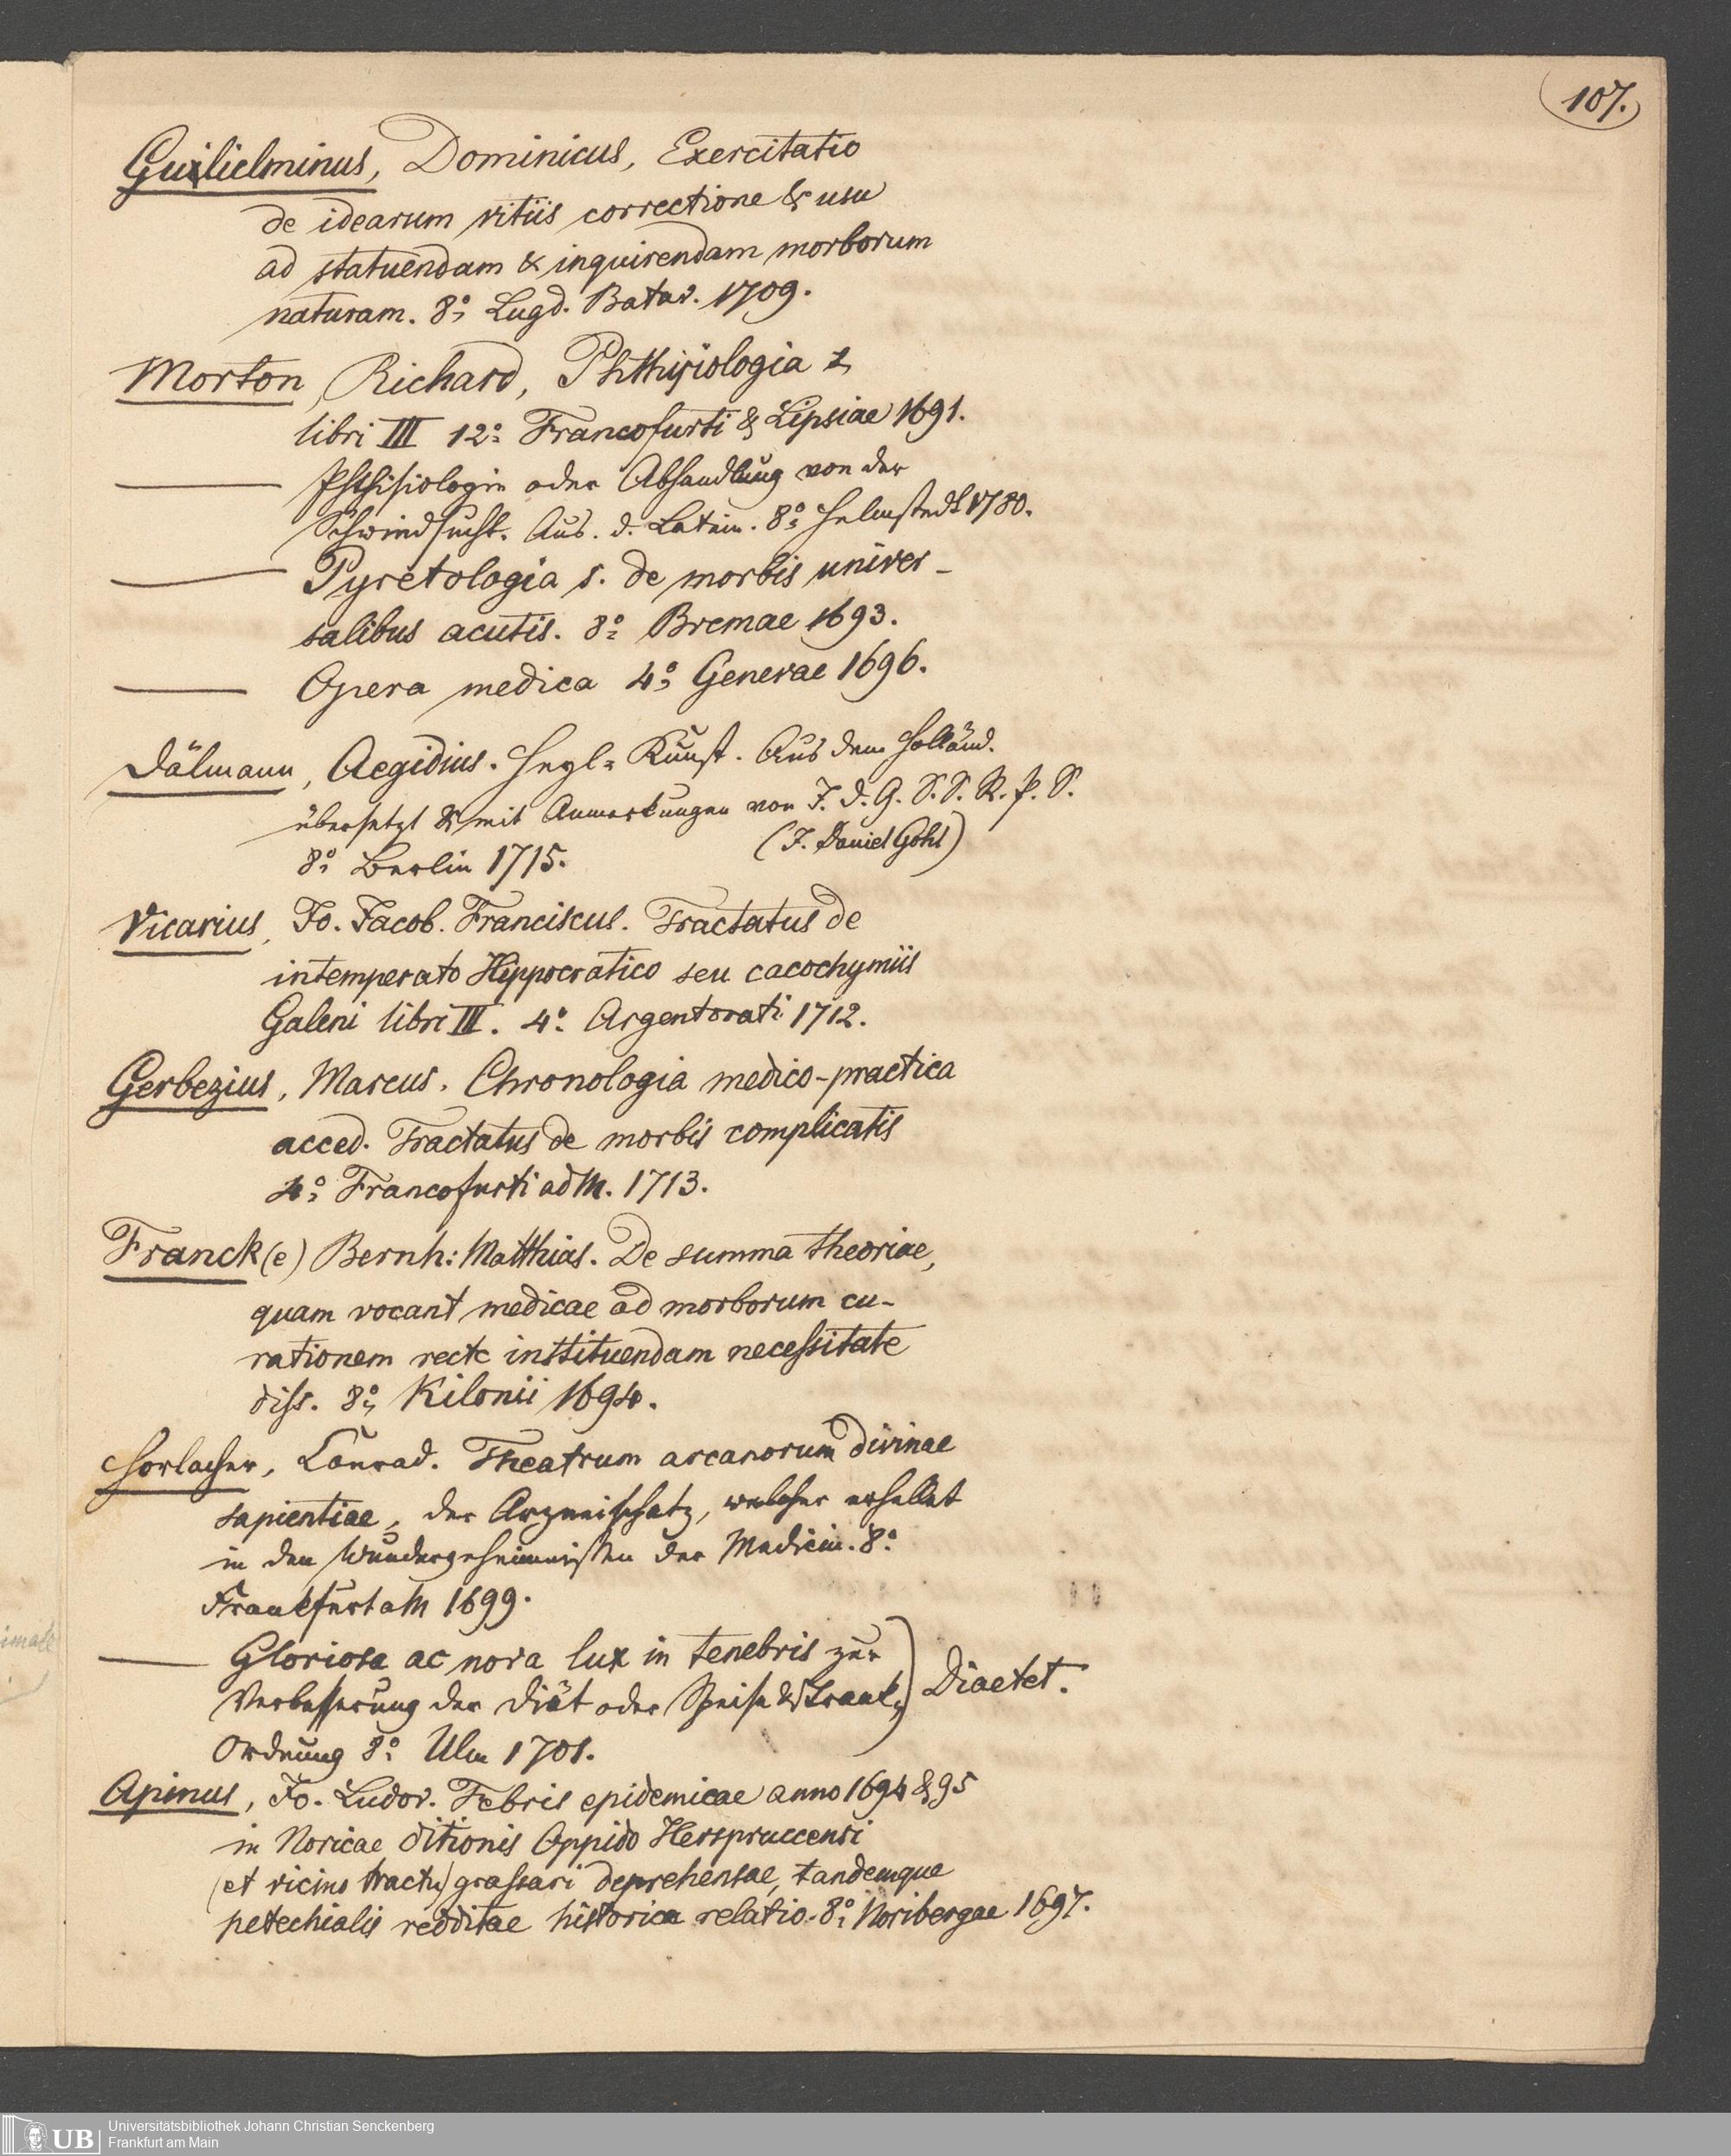 107.
Guilielminus, Dominicus, Exercitatio
de idearum vitiis correctione & usu
ad statuendam & inquirendam morborum
naturam. 8º Lugd. Batav. 1709.
Morton, Richard, Phthisiologia
libri III 12º Francofurti & Lipsiae 1691.
—— Phthisiologie oder Abhandlung von der
Schwindsucht. Aus. d. Latein. 8º Helmstedt 1780.
—— Pyretologia s. de morbis univer-
salibus acutis. 8º Bremae 1693.
—— Opera medica 4º Genevae 1696.
Dälmann, Aegidius. Heyl-Kunst. Aus dem Holländ.
übersetzt & mit Anmerkungen von J. D. G. S. S. R. P. S.
(J. Daniel Gohl)
8º Berlin 1715.
Vicarius, Jo. Jacob. Franciscus. Tractatus de
intemperato Hippocratico seu cacochymiis
Galeni libri III. 4º Argentorati 1712.
Gerbezius, Marcus. Chronologia medico-practica
acced. Tractatus de morbis complicatis
4º Francofurti ad M. 1713.
Franck(e) Bernh: Matthias. De summa theoriae,
quam vocant medicae ad morborum cu-
rationem recte instituendam necessitate
diss. 8º Kilonii 1694.
Horlacher, Conrad. Theatrum arcanorum divinae
sapientiae, der Arzneischatz, welcher erhellet
in den Wundergeheimnissen der Medicin. 8º
Frankfurt a M 1699.
—— Gloriosa ac nova lux in tenebris zur
Verbesserung der Diät oder Speise & Trank, Diaetet.
Ordnung 8º Ulm 1701.
Apinus, Jo. Ludov. Febris epidemicae anno 1694 & 95
in Noricae ditionis Oppido Herspruccensi
(et vicino tractu) grassari deprehensae, tandemque
petechialis redditae historica relatio. 8º Noribergae 1697.
UB Universitätsbibliothek Johann Christian Senckenberg
Frankfurt am Main